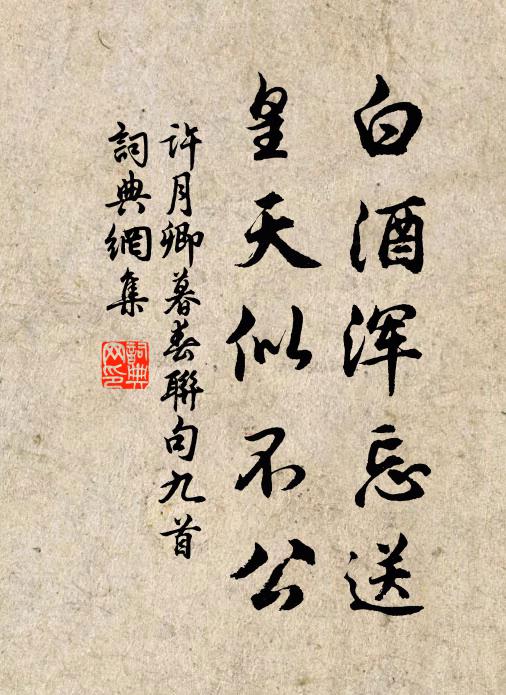 白酒浑忘送
皇天似不公
许月卿暮春聯句九首
詞典網集
詞典网印